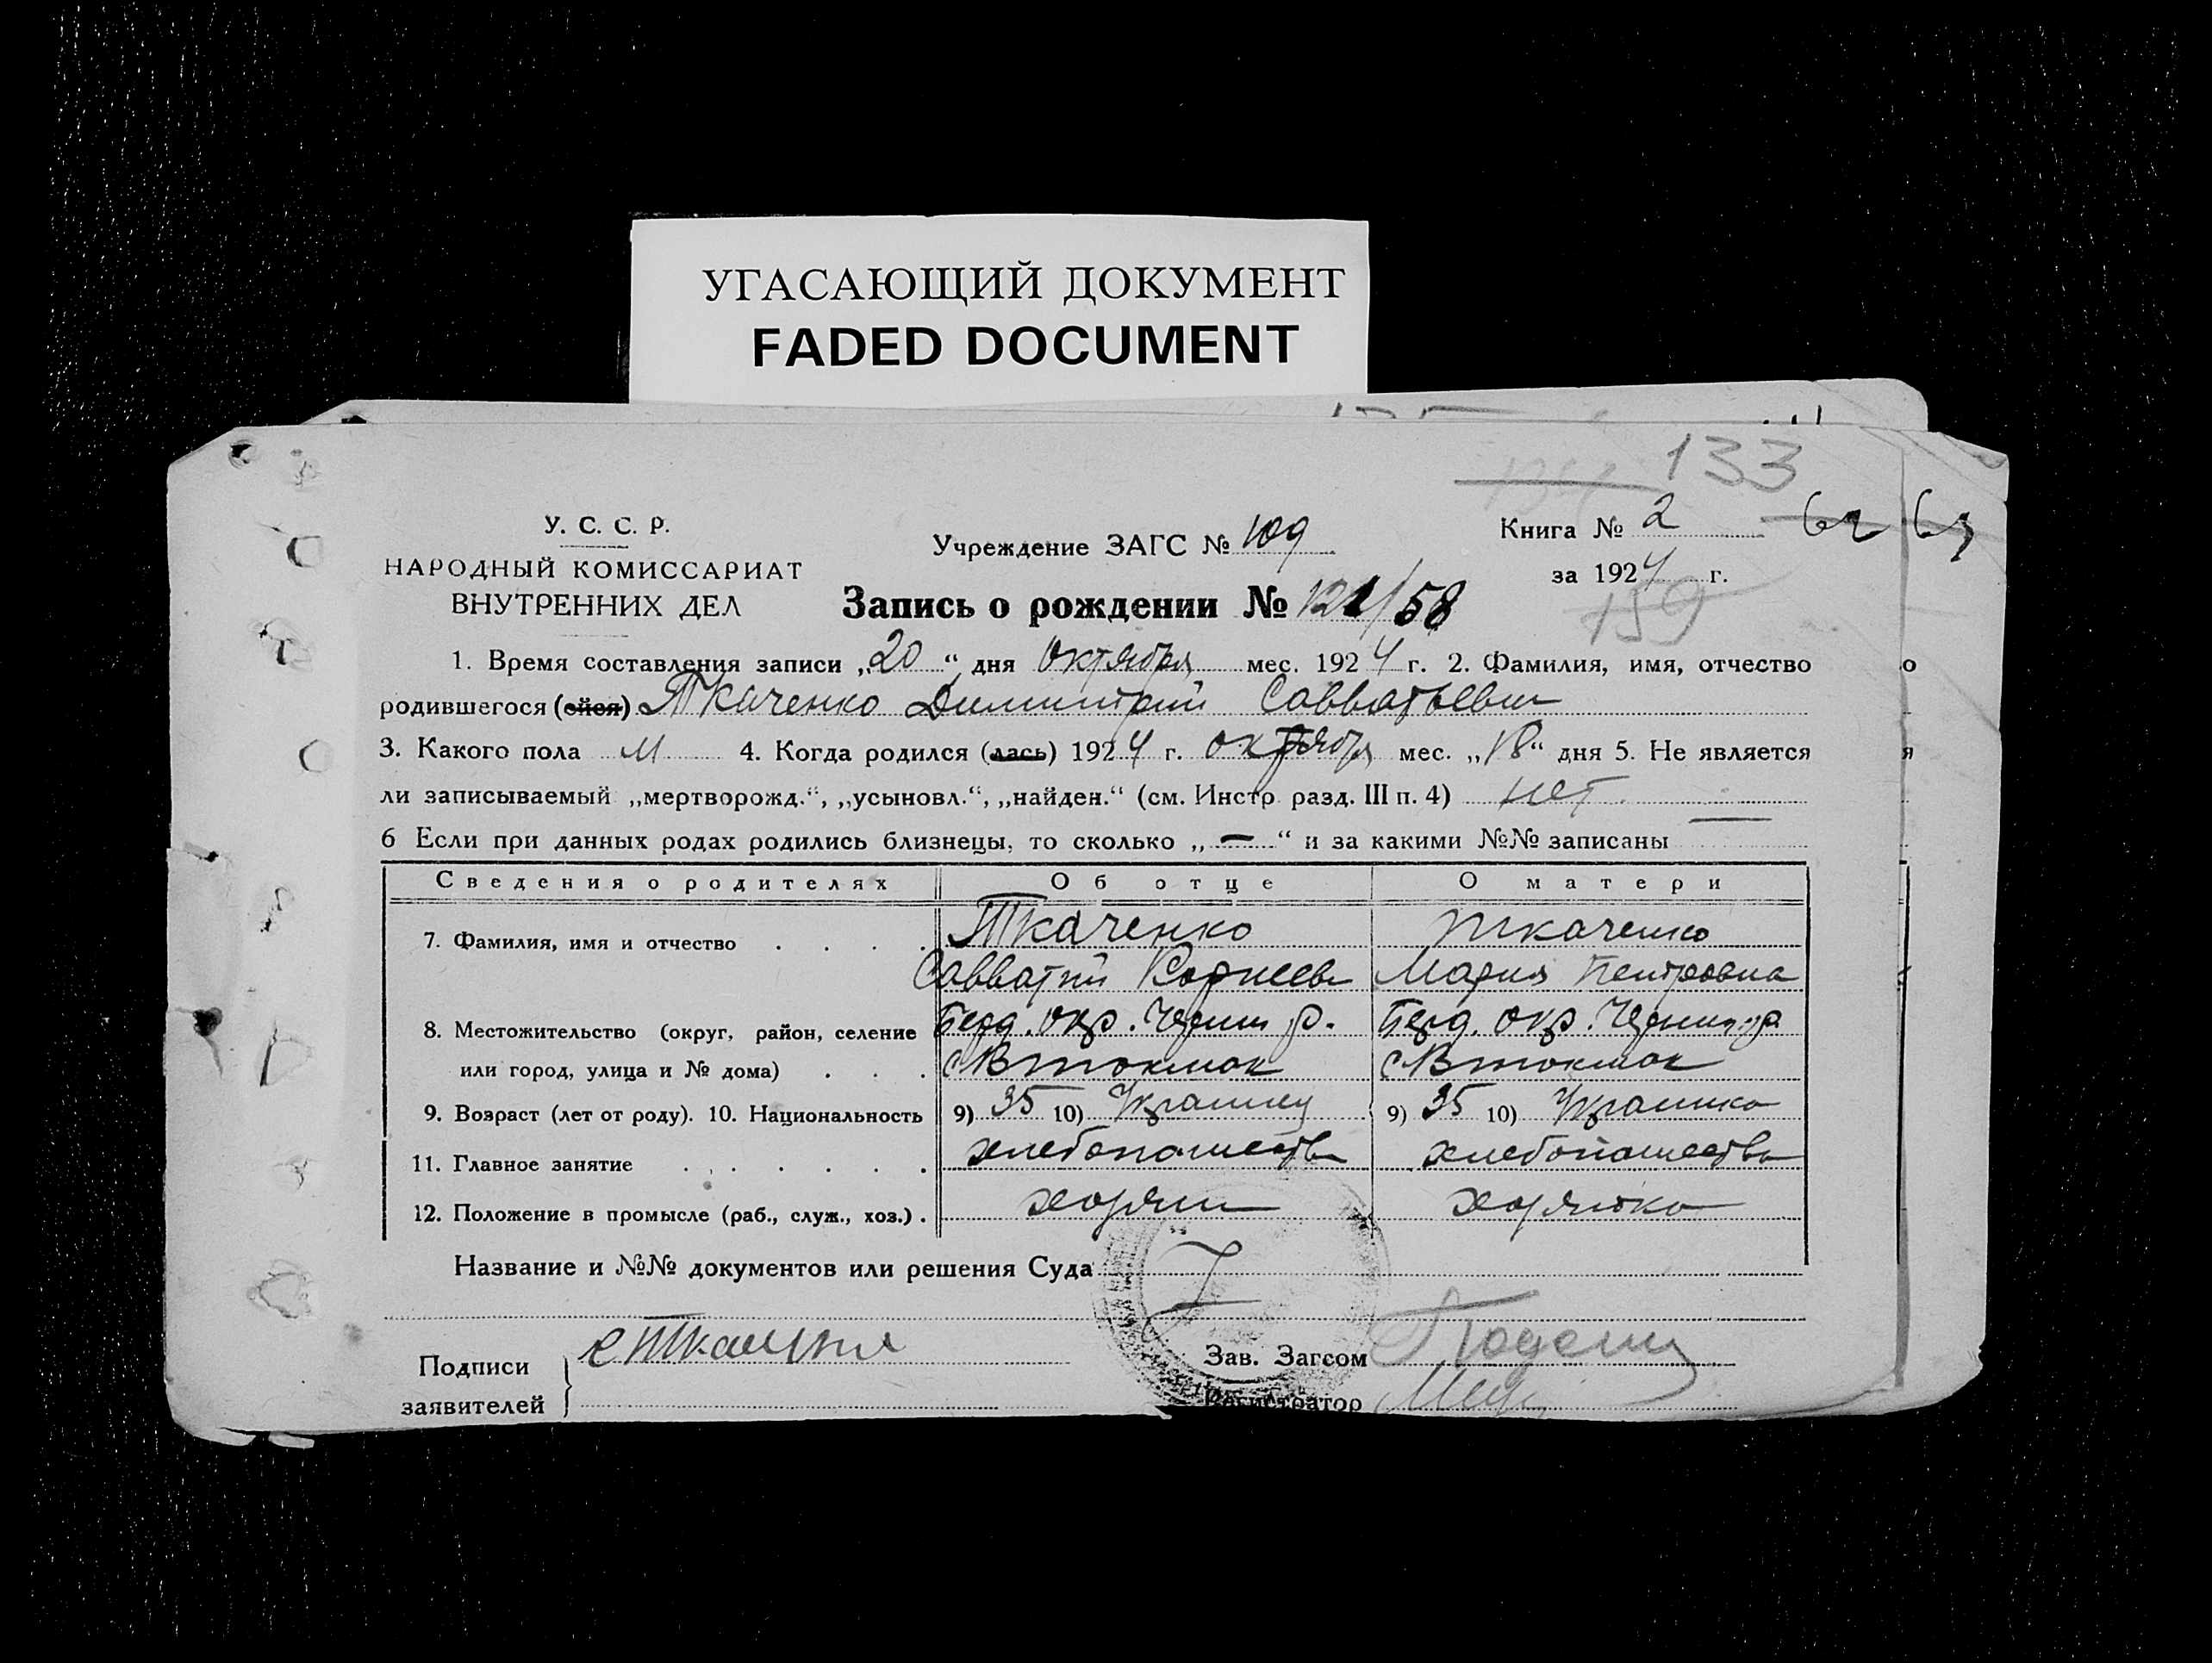 УГАСАЮЩИЙ ДОКУМЕНТ
FADED DOCUMENT
133
У. С. С. Р.
НАРОДНЫЙ КОМИССАРИАТ
ВНУТРЕННИХ ДЕЛ
Учреждение ЗАГС № 109
Книга № 2
за 1924 г.
159
Запись о рождении № 121/58
1. Время составления записи „20“ дня октября мес. 1924 г. 2. Фамилия, имя, отчество
родившегося (ейся) Ткаченко Димитрий Савватьевич
3. Какого пола М 4. Когда родился (лась) 1924 г. октября мес. „18“ дня 5. Не является
ли записываемый „мертворожд.“, „усыновл.“, „найден.“ (см. Инстр. разд. III п. 4) нет
6 Если при данных родах родились близнецы, то сколько „—“ и за какими №№ записаны —
Сведения о родителях Об отце О матери
7. Фамилия, имя и отчество Ткаченко Ткаченко
Савватий Корнеев Мария Петровна
8. Местожительство (округ, район, селение Берд. окр. р. Берд. окр. р.
или город, улица и № дома) с В токмак с В токмак
9. Возраст (лет от роду). 10. Национальность 9) 35 10) Украинец 9) 35 10) Украинка
11. Главное занятие хлебопашество хлебопашество
12. Положение в промысле (раб., служ., хоз.) хозяин хозяйка
Название и №№ документов или решения Суда
Подписи
заявителей
Зав. Загсом
Регистратор